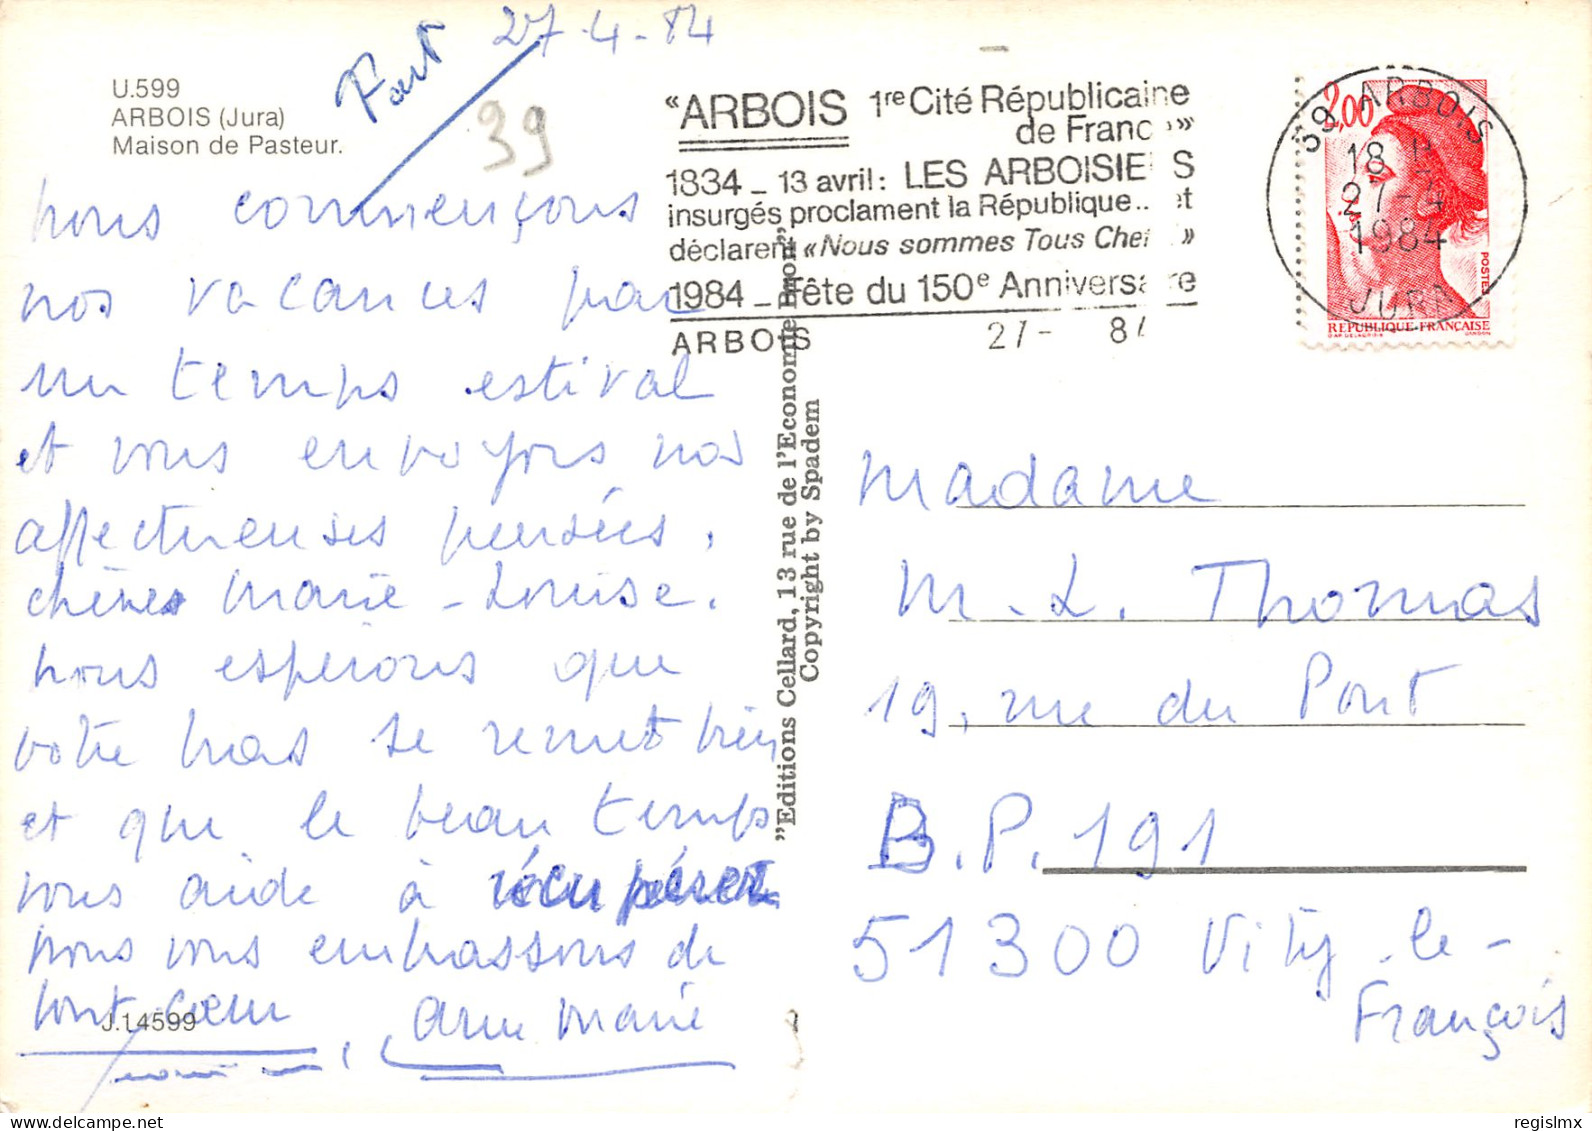 27-4-84
Fait
39
U.599
ARBOIS (Jura)
Maison de Pasteur.
nous commençons
nos vacances par
un temps estival
et vous envoyons nos
affectueuses pensées,
chères Marie-Louise.
nous espérons que
votre bras se remet bien
et que le beau temps
vous aide à récupérer
nous vous embrassons de
tout coeur, Anne Marie
J.14599
"Editions Cellard, 13 rue de l'Economie Bron"
Copyright by Spadem
«ARBOIS 1re Cité Républicaine
de France»
1834 _ 13 avril: LES ARBOISIENS
insurgés proclament la République.. et
déclarent «Nous sommes Tous Chefs»
1984 _ Fête du 150e Anniversaire
ARBOIS 27- 84
39 ARBOIS
18 H
27-4
1984
JURA
2,00
POSTES
REPUBLIQUE FRANÇAISE
Madame
M.L. Thomas
19, rue du Pont
B.P. 191
51300 Vitry-le-
François
regislmx